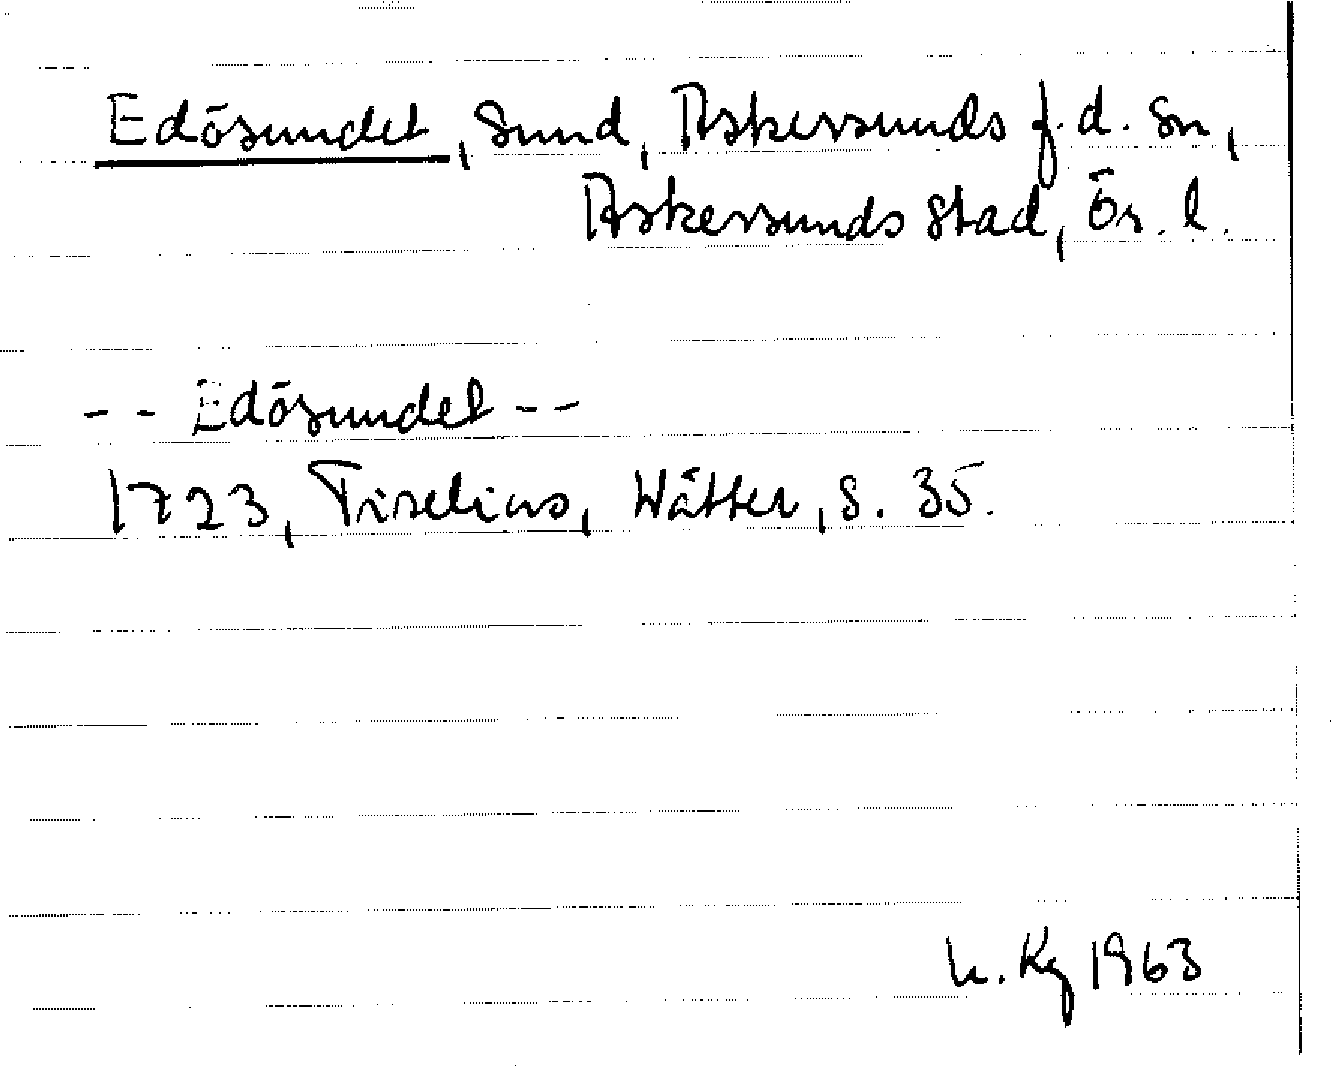 Edösundet, sund, Askersunds f.d. sn,
Askersunds stad, Ör. l.
-- Edösundet --
1723, Tiselius, Wätter, s. 35.
h. Kg 1963